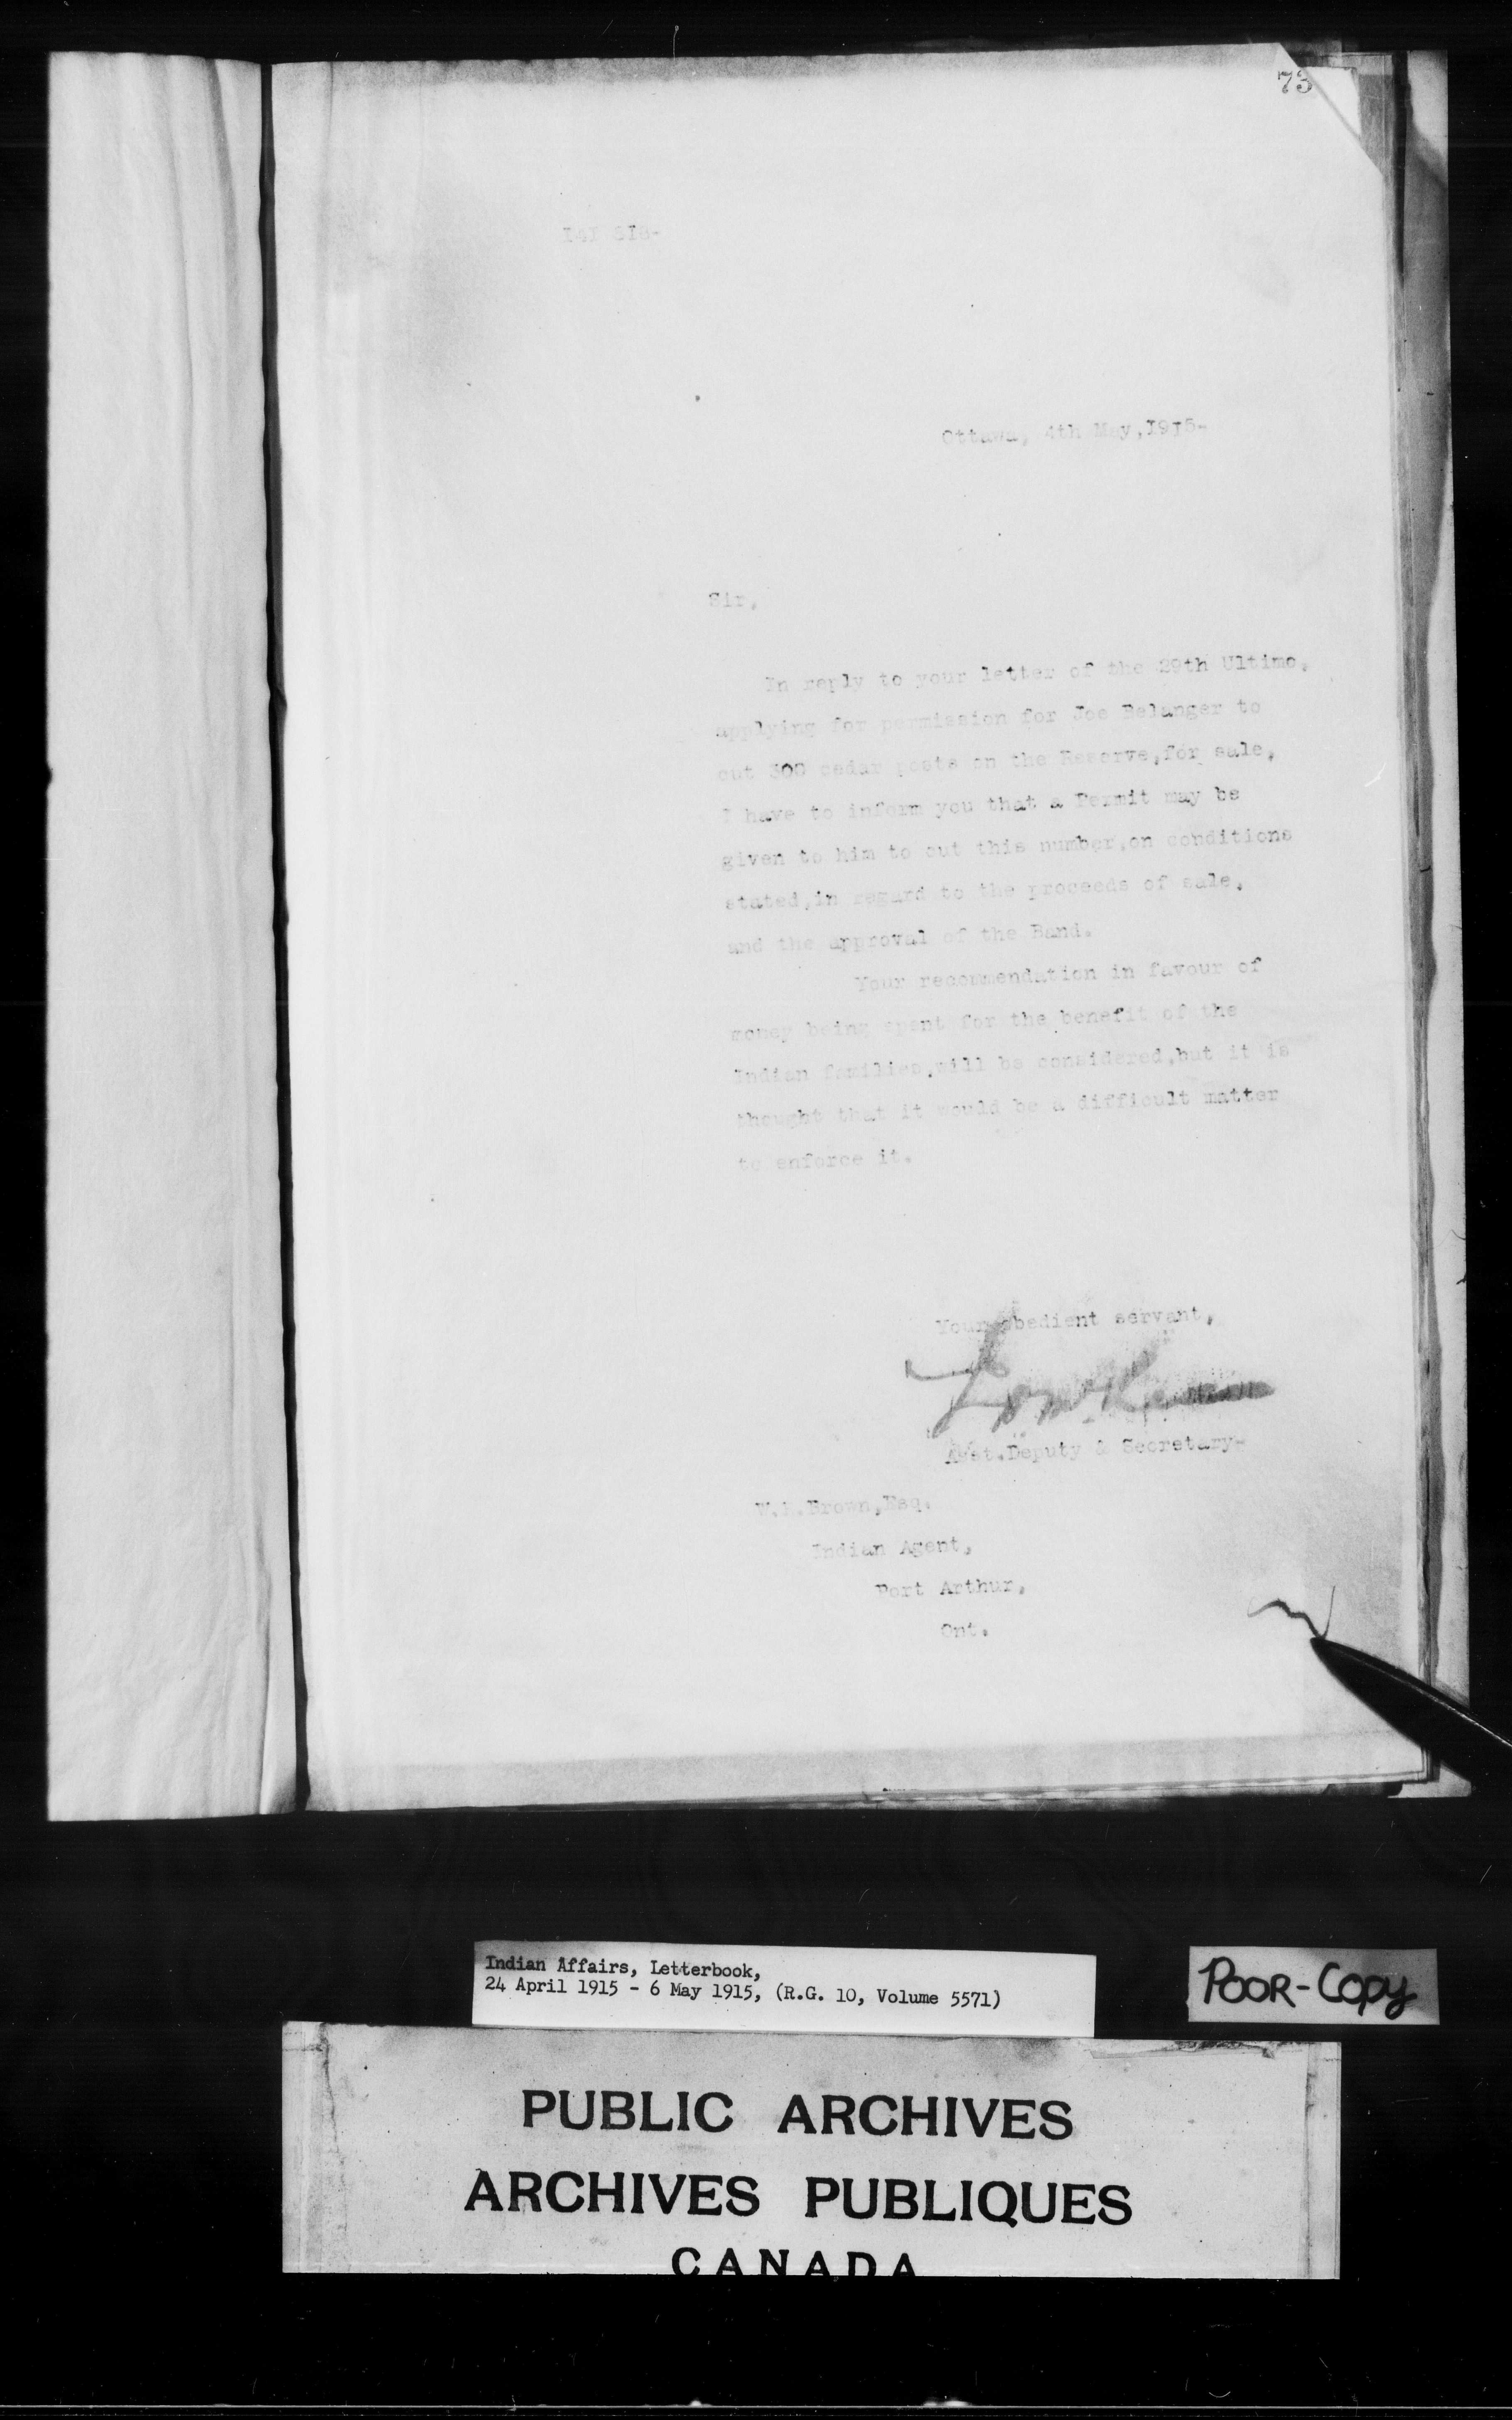 73
Ottawa, 4th May,1915-
Sir,
In reply to your letter of the 29th Ultimo,
applying for permission for Joe Belanger to
cut 300 cedar posts on the Reserve,for sale,
I have to inform you that a Permit may be
given to him to cut this number,on conditions
stated,in regard to the proceeds of sale,
and the approval of the Band.
Your recommendation in favour of
money being spent for the benefit of the
Indian families,will be considered,but it is
thought that it would be a difficult matter
to enforce it.
Your obedient servant,
Asst.Deputy & Secretary-
Brown,Esq.
Indian Agent,
Port Arthur,
Ont.
Indian Affairs, Letterbook,
24 April 1915 - 6 May 1915, (R.G. 10, Volume 5571)
POOR-COPY
PUBLIC ARCHIVES
ARCHIVES PUBLIQUES
CANADA